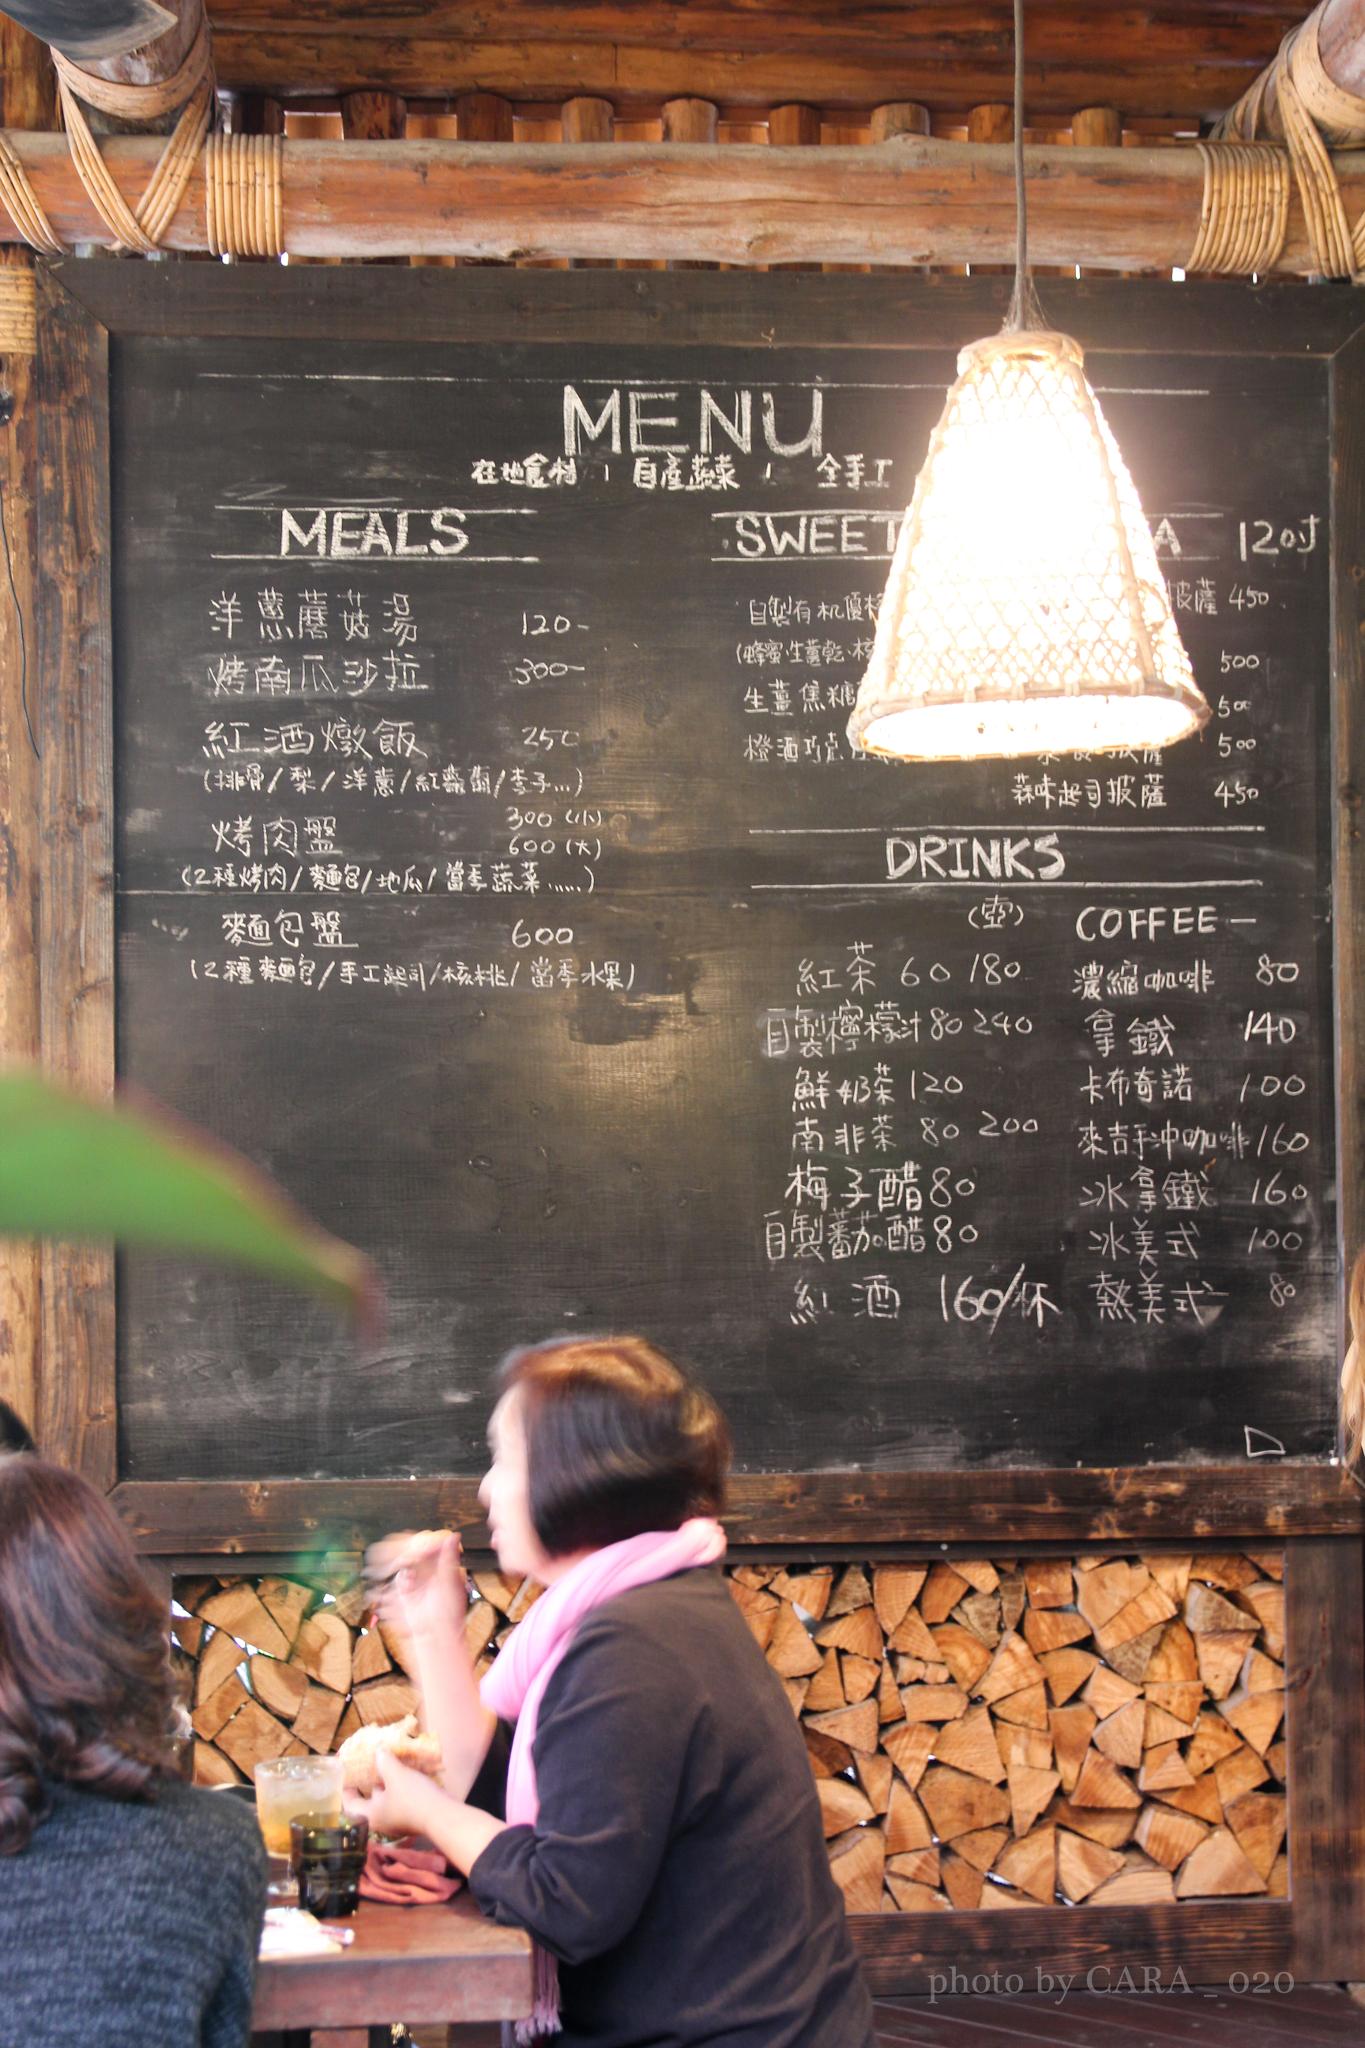 MENU
在地食材 | 自產蔬菜 | 全手工
MEALS
洋蔥蘑菇湯 120-
烤南瓜沙拉 300-
紅酒燉飯 250
(排骨/梨/洋蔥/紅蘿蔔/李子...)
烤肉盤 300 (小)
600 (大)
(2種烤肉/麵包/地瓜/當季蔬菜......)
麵包盤 600
(2種麵包/手工起司/核桃/當季水果)
SWEET
自製有机優格
(蜂蜜.生薑乾.核
生薑焦糖
橙酒巧克力
A 12吋
披薩 450
500
500
披薩 500
蒜味起司披薩 450
DRINKS
(壺)
紅茶 60 180
自製檸檬汁 80 240
鮮奶茶 120
南非茶 80 200
梅子醋 80
自製蕃茄醋 80
紅酒 160/杯
COFFEE —
濃縮咖啡 80
拿鐵 140
卡布奇諾 100
來吉手沖咖啡 160
冰拿鐵 160
冰美式 100
熱美式 80
photo by CARA _ 020